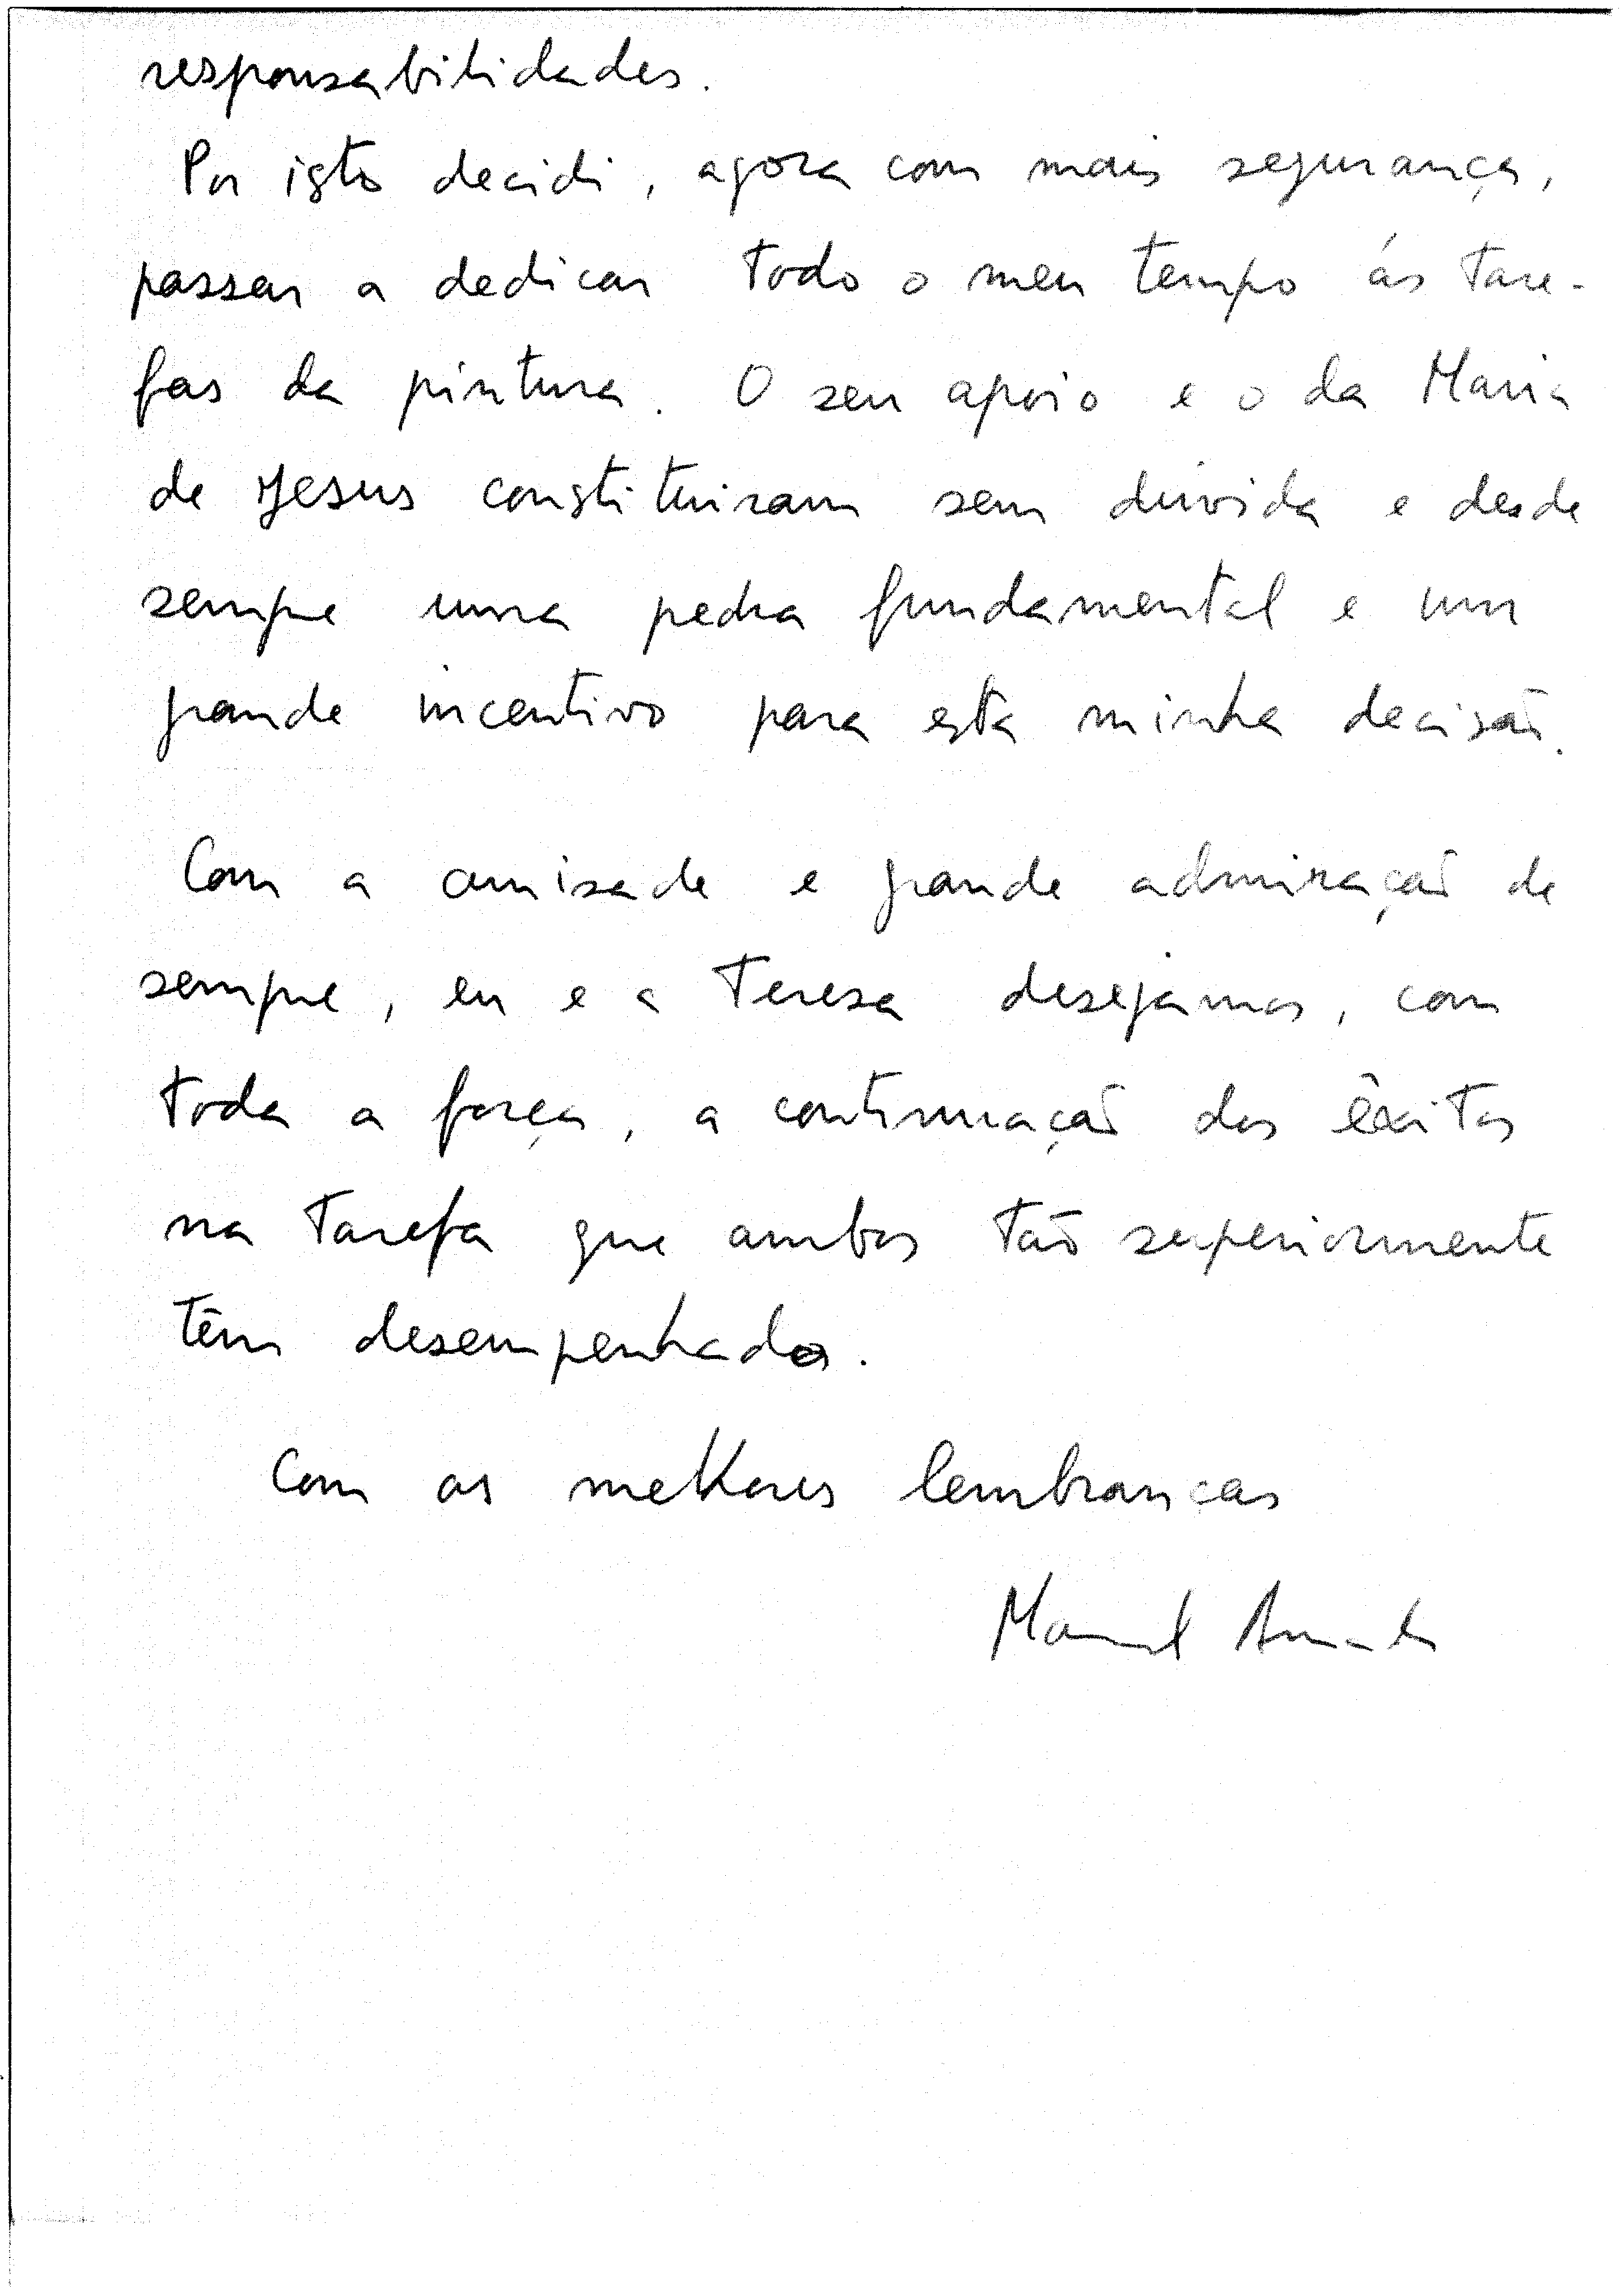 responsabilidades.
Por isto decidi, agora com mais segurança,
passar a dedicar todo o meu tempo ás tare-
fas da pintura. O seu apoio e o da Maria
de Jesus constituiram sem dúvida e desde
sempre uma pedra fundamental e um
grande incentivo para esta minha decisão.
Com a amizade e grande admiração de
sempre, eu e a Teresa desejamos, com
toda a força, a continuação dos êxitos
na tarefa que ambos tão superiormente
têm desempenhado.
Com as melhores lembranças
Manuel